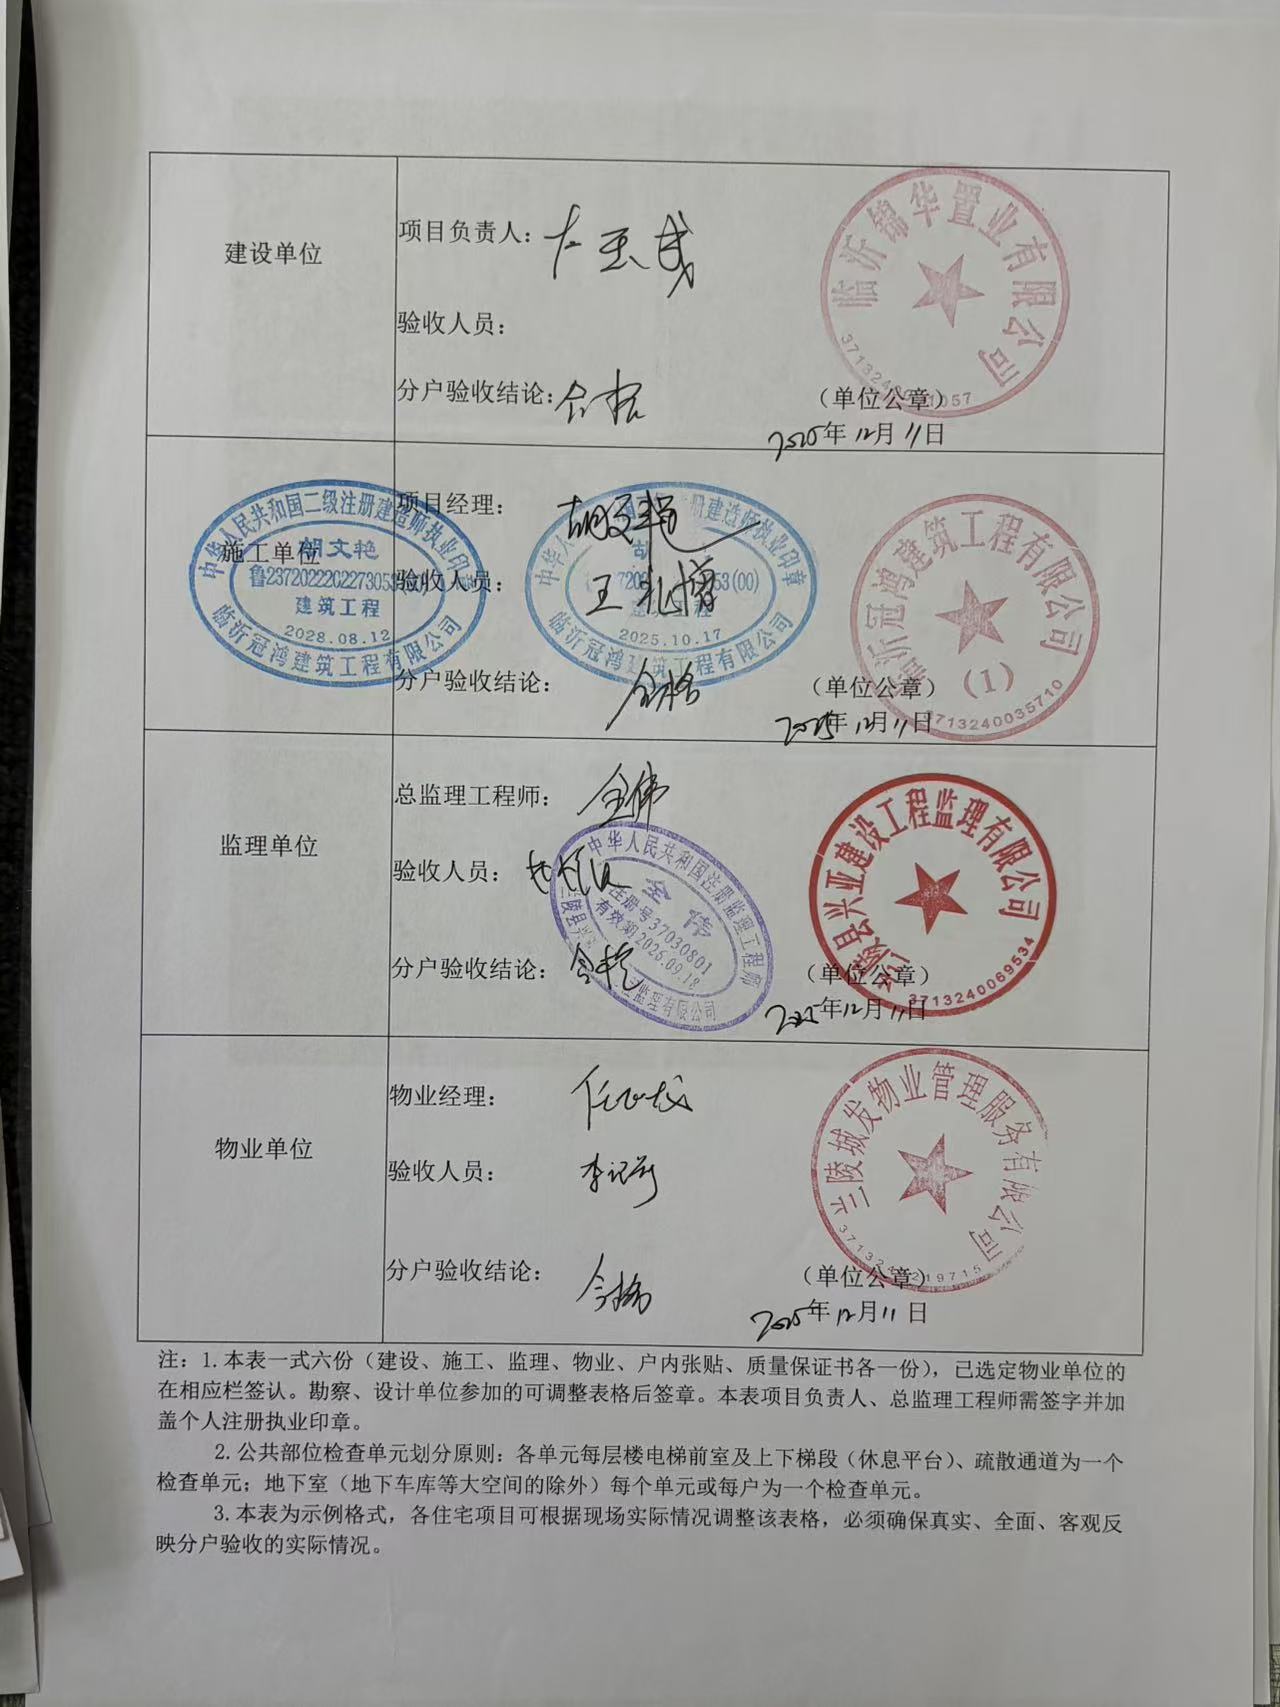 建设单位
项目负责人：
验收人员：
分户验收结论：合格
（单位公章）
2025年12月11日
临沂锦华置业有限公司
施工单位
项目经理：胡文艳
验收人员：王礼博
分户验收结论：合格
（单位公章）
2025年12月11日
中华人民共和国二级注册建造师执业印章
胡文艳
建筑工程
2028.08.12
临沂冠鸿建筑工程有限公司
2025.10.17
临沂冠鸿建筑工程有限公司
临沂冠鸿建筑工程有限公司
（1）
3713240035710
监理单位
总监理工程师：全伟
验收人员：
分户验收结论：合格
（单位公章）
2025年12月11日
中华人民共和国注册监理工程师
全伟
注册号37030801
有效期2026.09.18
监理有限公司
县兴亚建设工程监理有限公司
3713240069534
物业单位
物业经理：
验收人员：
分户验收结论：合格
（单位公章）
2025年12月11日
兰陵城发物业管理服务有限公司
注：1.本表一式六份（建设、施工、监理、物业、户内张贴、质量保证书各一份），已选定物业单位的
在相应栏签认。勘察、设计单位参加的可调整表格后签章。本表项目负责人、总监理工程师需签字并加
盖个人注册执业印章。
2.公共部位检查单元划分原则：各单元每层楼电梯前室及上下梯段（休息平台）、疏散通道为一个
检查单元；地下室（地下车库等大空间的除外）每个单元或每户为一个检查单元。
3.本表为示例格式，各住宅项目可根据现场实际情况调整该表格，必须确保真实、全面、客观反
映分户验收的实际情况。